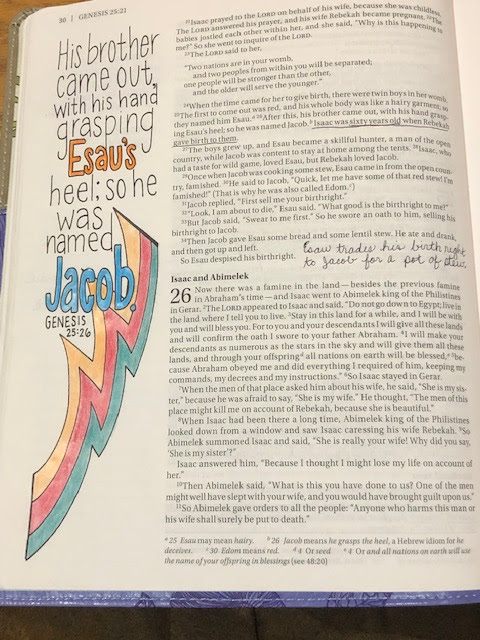 30 | GENESIS 25:21
His brother
came out,
with his hand
grasping
Esau's
heel; so he
was
named
Jacob.
GENESIS
25:26
²¹Isaac prayed to the LORD on behalf of his wife, because she was childless.
The LORD answered his prayer, and his wife Rebekah became pregnant. ²²The
babies jostled each other within her, and she said, "Why is this happening to
me?" So she went to inquire of the LORD.
²³The LORD said to her,
"Two nations are in your womb,
and two peoples from within you will be separated;
one people will be stronger than the other,
and the older will serve the younger."
²⁴When the time came for her to give birth, there were twin boys in her womb.
²⁵The first to come out was red, and his whole body was like a hairy garment; so
they named him Esau.ᵃ ²⁶After this, his brother came out, with his hand grasp-
ing Esau's heel; so he was named Jacob.ᵇ Isaac was sixty years old when Rebekah
gave birth to them.
²⁷The boys grew up, and Esau became a skillful hunter, a man of the open
country, while Jacob was content to stay at home among the tents. ²⁸Isaac, who
had a taste for wild game, loved Esau, but Rebekah loved Jacob.
²⁹Once when Jacob was cooking some stew, Esau came in from the open coun-
try, famished. ³⁰He said to Jacob, "Quick, let me have some of that red stew! I'm
famished!" (That is why he was also called Edom.ᶜ)
³¹Jacob replied, "First sell me your birthright."
³²"Look, I am about to die," Esau said. "What good is the birthright to me?"
³³But Jacob said, "Swear to me first." So he swore an oath to him, selling his
birthright to Jacob.
³⁴Then Jacob gave Esau some bread and some lentil stew. He ate and drank,
and then got up and left.
So Esau despised his birthright.
Esau trades his birth right
to Jacob for a pot of stew.
Isaac and Abimelek
26 Now there was a famine in the land—besides the previous famine
in Abraham's time—and Isaac went to Abimelek king of the Philistines
in Gerar. ²The LORD appeared to Isaac and said, "Do not go down to Egypt; live in
the land where I tell you to live. ³Stay in this land for a while, and I will be with
you and will bless you. For to you and your descendants I will give all these lands
and will confirm the oath I swore to your father Abraham. ⁴I will make your
descendants as numerous as the stars in the sky and will give them all these
lands, and through your offspringᵈ all nations on earth will be blessed,ᵉ ⁵be-
cause Abraham obeyed me and did everything I required of him, keeping my
commands, my decrees and my instructions." ⁶So Isaac stayed in Gerar.
⁷When the men of that place asked him about his wife, he said, "She is my sis-
ter," because he was afraid to say, "She is my wife." He thought, "The men of this
place might kill me on account of Rebekah, because she is beautiful."
⁸When Isaac had been there a long time, Abimelek king of the Philistines
looked down from a window and saw Isaac caressing his wife Rebekah. ⁹So
Abimelek summoned Isaac and said, "She is really your wife! Why did you say,
'She is my sister'?"
Isaac answered him, "Because I thought I might lose my life on account of
her."
¹⁰Then Abimelek said, "What is this you have done to us? One of the men
might well have slept with your wife, and you would have brought guilt upon us."
¹¹So Abimelek gave orders to all the people: "Anyone who harms this man or
his wife shall surely be put to death."
ᵃ 25 Esau may mean hairy. ᵇ 26 Jacob means he grasps the heel, a Hebrew idiom for he
deceives. ᶜ 30 Edom means red. ᵈ 4 Or seed ᵉ 4 Or and all nations on earth will use
the name of your offspring in blessings (see 48:20)